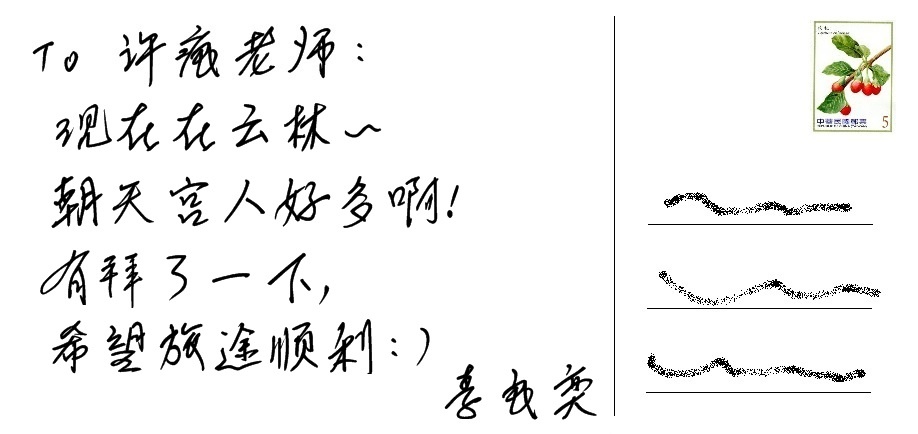 To 许老师：
现在在云林~
朝天宫人好多啊！
有拜了一下，
希望旅途顺利：）
奕
中華民國郵票 5